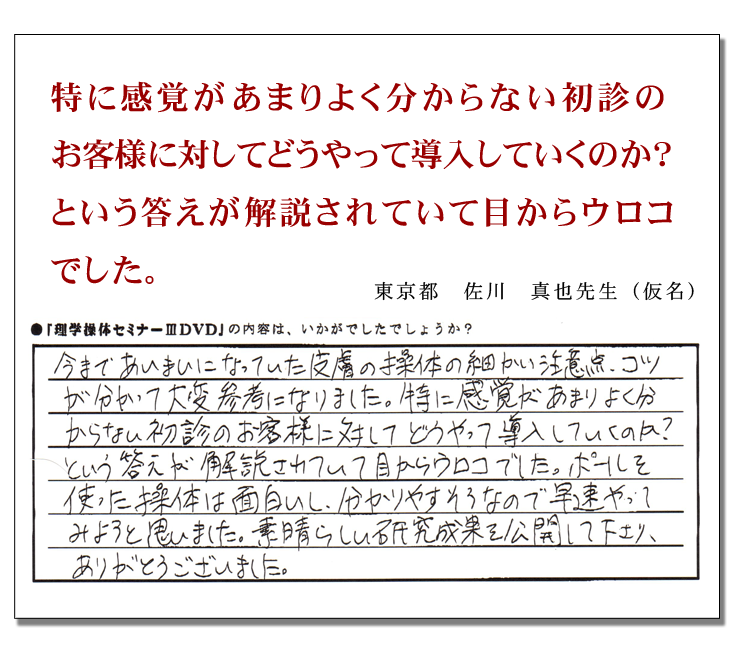 特に感覚があまりよく分からない初診の
お客様に対してどうやって導入していくのか?
という答えが解説されていて目からウロコ
でした。
東京都 佐川 真也先生(仮名)
●『理学操体セミナーⅢDVD』の内容は、いかがでしたでしょうか?
今まであいまいになっていた皮膚の操体の細かい注意点、コツ
が分かって大変参考になりました。特に感覚があまりよく分
からない初診のお客様に対してどうやって導入していくのか?
という答えが解説されていて目からウロコでした。ボールを
使った操体は面白いし、分かりやすそうなので早速やって
みようと思いました。素晴らしい研究成果を公開して下さり、
ありがとうございました。